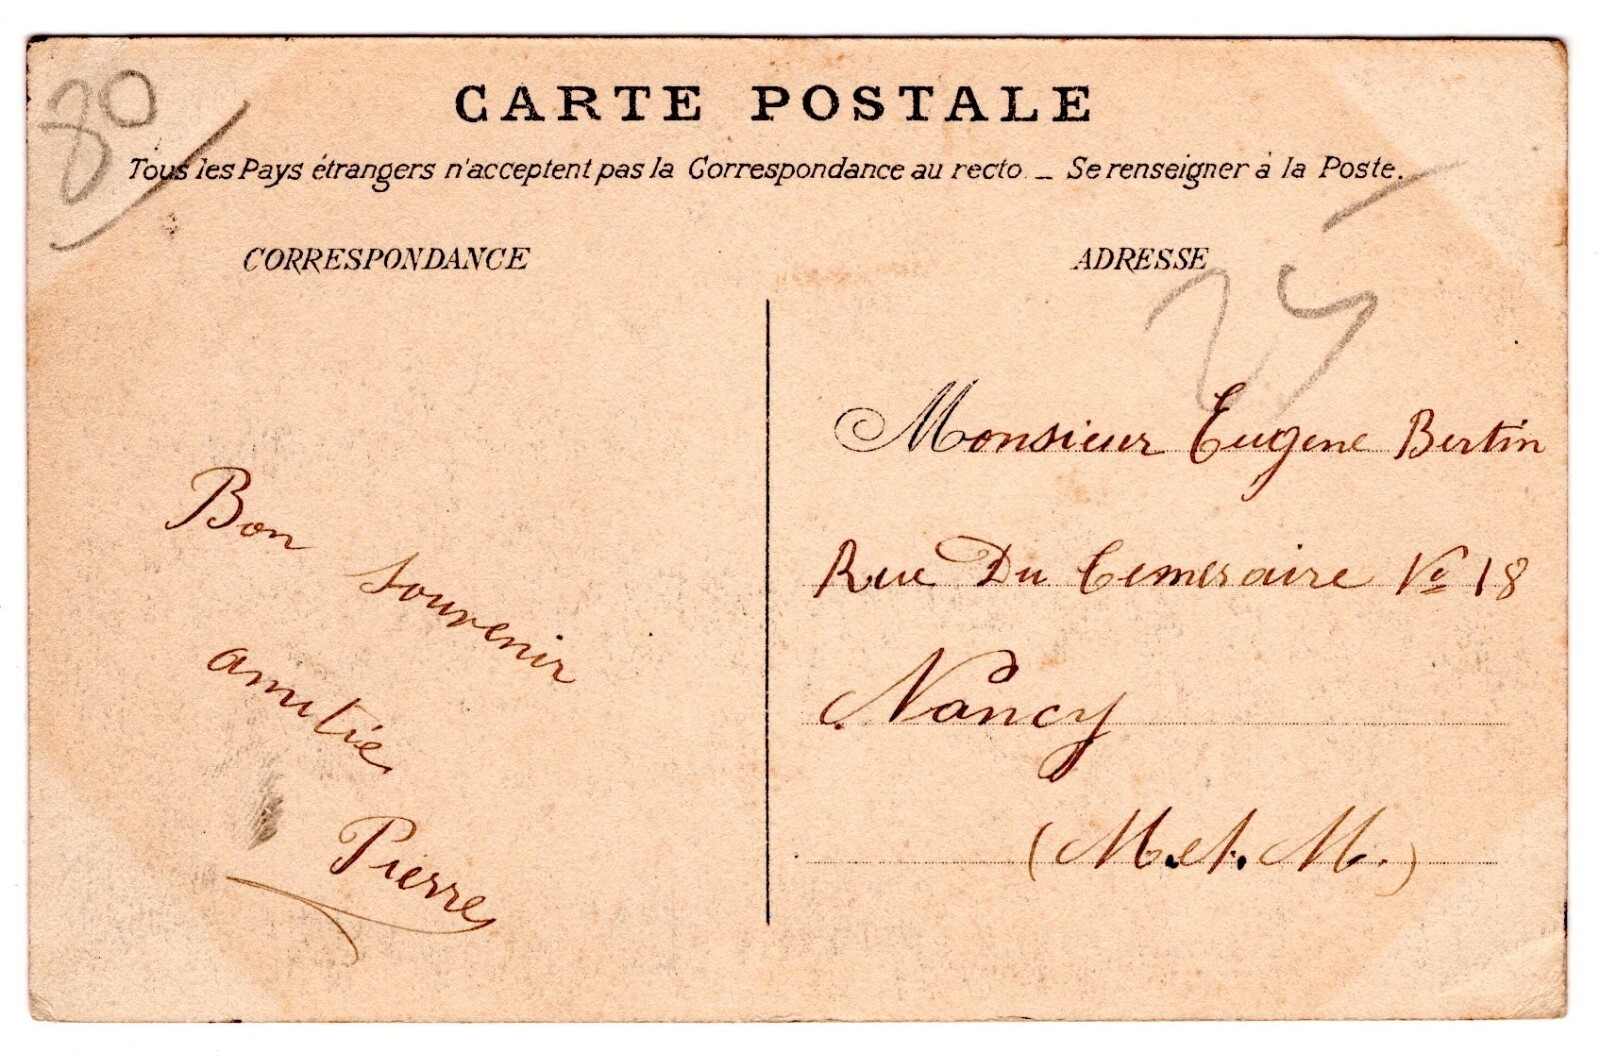 80
CARTE POSTALE
Tous les Pays étrangers n'acceptent pas la Correspondance au recto _ Se renseigner à la Poste.
CORRESPONDANCE
Bon
souvenir
amitié
Pierre
ADRESSE
25
Monsieur Eugene Bertin
Rue Du Temeraire No 18
Nancy
(M. et. M.)